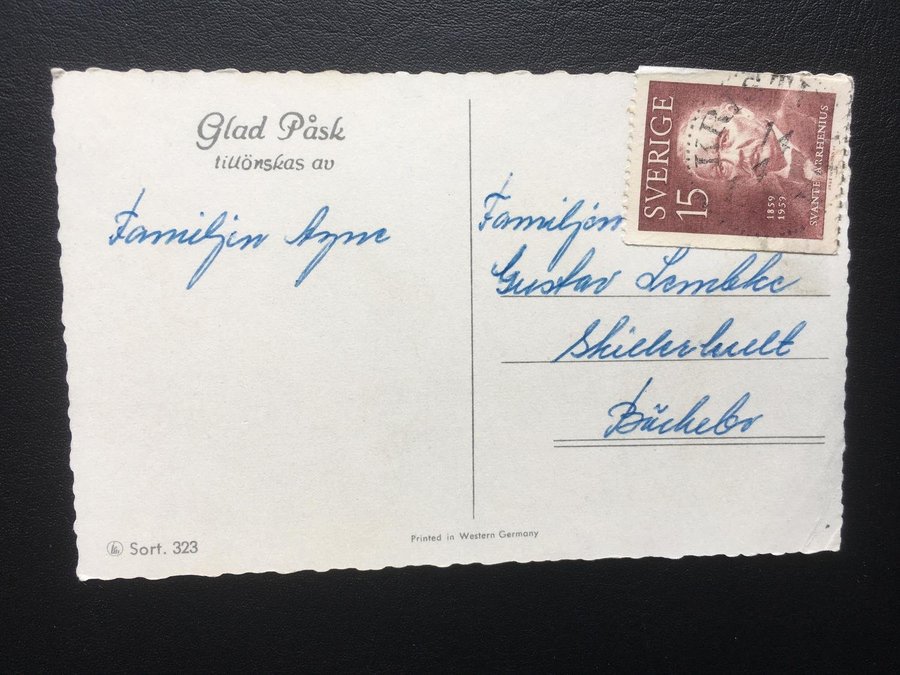 Glad Påsk
tillönskas av
Familjen Ayne
Familjen
Gustav Lembke
Bäckebo
SVERIGE
15
1859
1959
SVANTE ARRHENIUS
Sort. 323
Printed in Western Germany